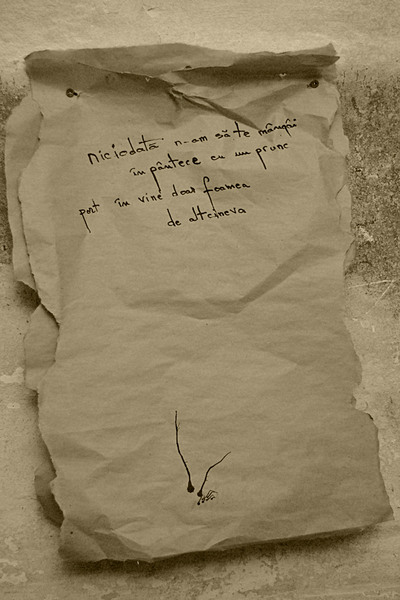 niciodată n-am să te mângâi
în pântece cu un prunc
port în vine doar foamea
de altcineva